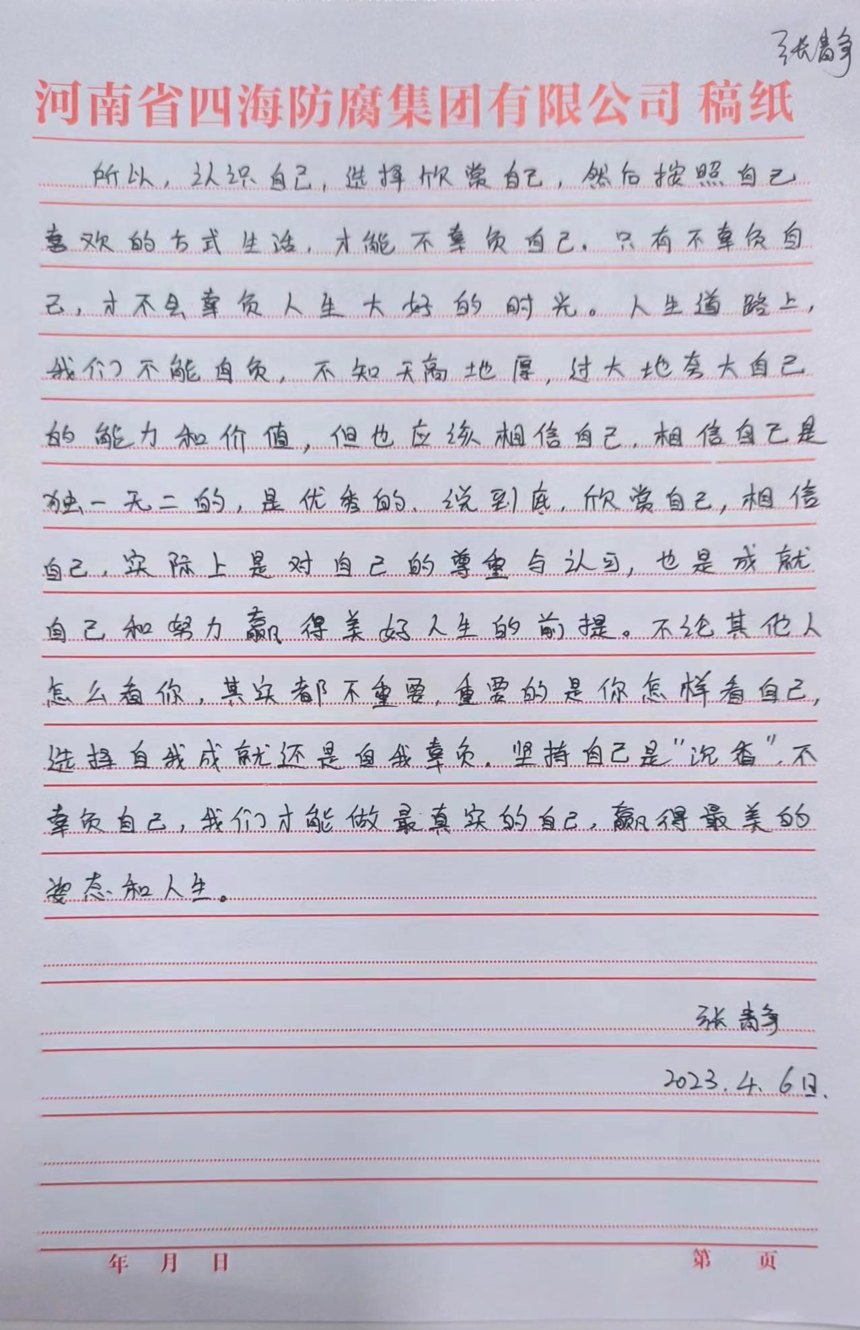 张青争
河南省四海防腐集团有限公司 稿纸
所以，认识自己，选择欣赏自己，然后按照自己
喜欢的方式生活，才能不辜负自己。只有不辜负自
己，才不会辜负人生大好的时光。人生道路上，
我们不能自负，不知天高地厚，过大地夸大自己
的能力和价值，但也应该相信自己，相信自己是
独一无二的，是优秀的。说到底，欣赏自己，相信
自己，实际上是对自己的尊重与认可，也是成就
自己和努力赢得美好人生的前提。不论其他人
怎么看你，其实都不重要，重要的是你怎样看自己，
选择自我成就还是自我辜负。坚持自己是"沉香"，不
辜负自己，我们才能做最真实的自己，赢得最美的
姿态和人生。
张青争
2023.4.6日.
年 月 日
第 页